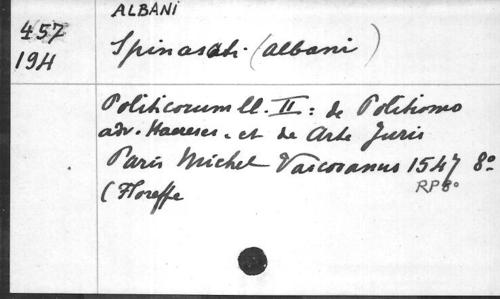 ALBANI
457
194
Spinasati. (Albani)
Politicorum ll. II: de Politismo
adv. Haereses. et de Arte Juris
Paris Michel Vascosanus 1547 8°
RP 8°
(Floreffe